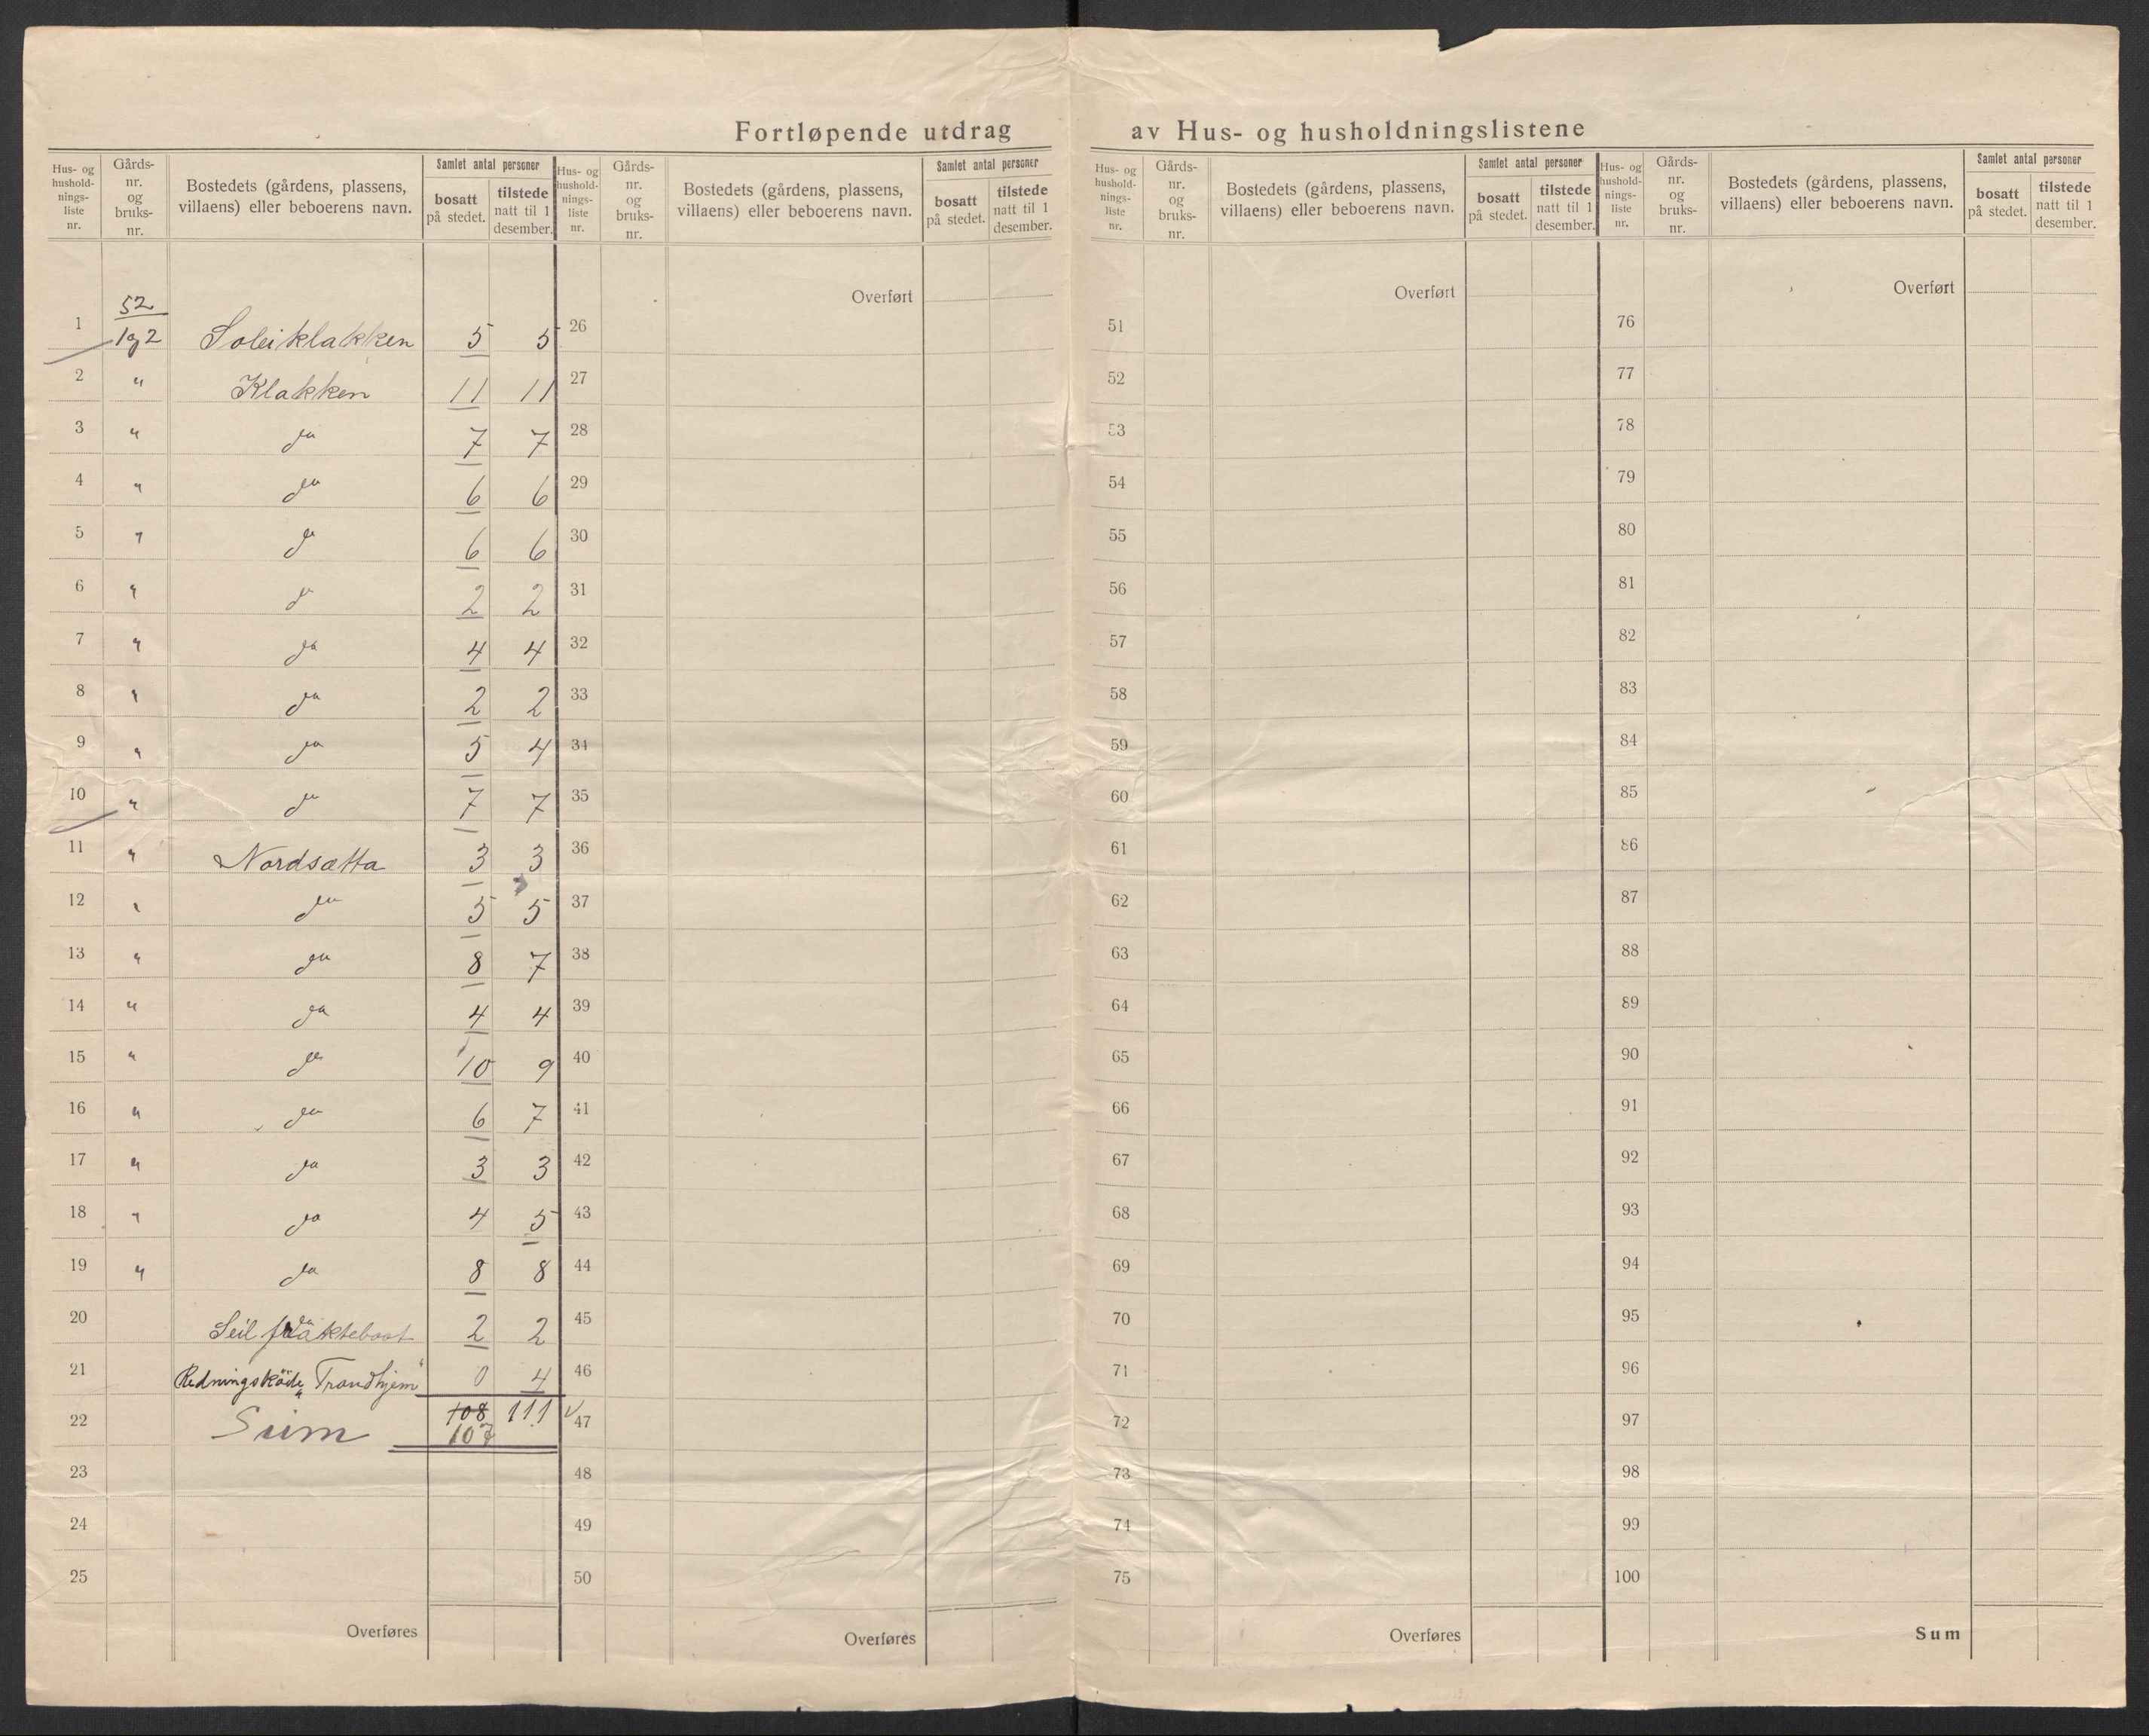 Fortløpende utdrag av Hus- og husholdningslistene
Hus- og hushold-nings-liste nr. | Gårds-nr. og bruks-nr. | Bostedets (gårdens, plassens, villaens) eller beboerens navn. | Samlet antal personer | bosatt på stedet. | tilstede natt til 1 desember.
Hus- og hushold-nings-liste nr. | Gårds-nr. og bruks-nr. | Bostedets (gårdens, plassens, villaens) eller beboerens navn. | Samlet antal personer | bosatt på stedet. | tilstede natt til 1 desember.
Hus- og hushold-nings-liste nr. | Gårds-nr. og bruks-nr. | Bostedets (gårdens, plassens, villaens) eller beboerens navn. | Samlet antal personer | bosatt på stedet. | tilstede natt til 1 desember.
Hus- og hushold-nings-liste nr. | Gårds-nr. og bruks-nr. | Bostedets (gårdens, plassens, villaens) eller beboerens navn. | Samlet antal personer | bosatt på stedet. | tilstede natt til 1 desember.
Overført
Overført
Overført
1 52/1 og 2 Soleiklakken 5 5 26 51 76
2 " Klakken 11 11 27 52 77
3 " do 7 7 28 53 78
4 " do 6 6 29 54 79
5 " do 6 6 30 55 80
6 " do 2 2 31 56 81
7 " do 4 4 32 57 82
8 " do 2 2 33 58 83
9 " do 5 4 34 59 84
10 " do 7 7 35 60 85
11 " Nordsætta 3 3 36 61 86
12 " do 5 5 37 62 87
13 " do 8 7 38 63 88
14 " do 4 4 39 64 89
15 " do 10 9 40 65 90
16 " do 6 7 41 66 91
17 " do 3 3 42 67 92
18 " do 4 5 43 68 93
19 " do 8 8 44 69 94
20 Seil 2 2 45 70 95
21 "Trondhjem" 0 4 46 71 96
22 Sum 108 111 47 72 97
107
23 48 73 98
24 49 74 99
25 50 75 100
Overføres
Overføres
Overføres
Sum